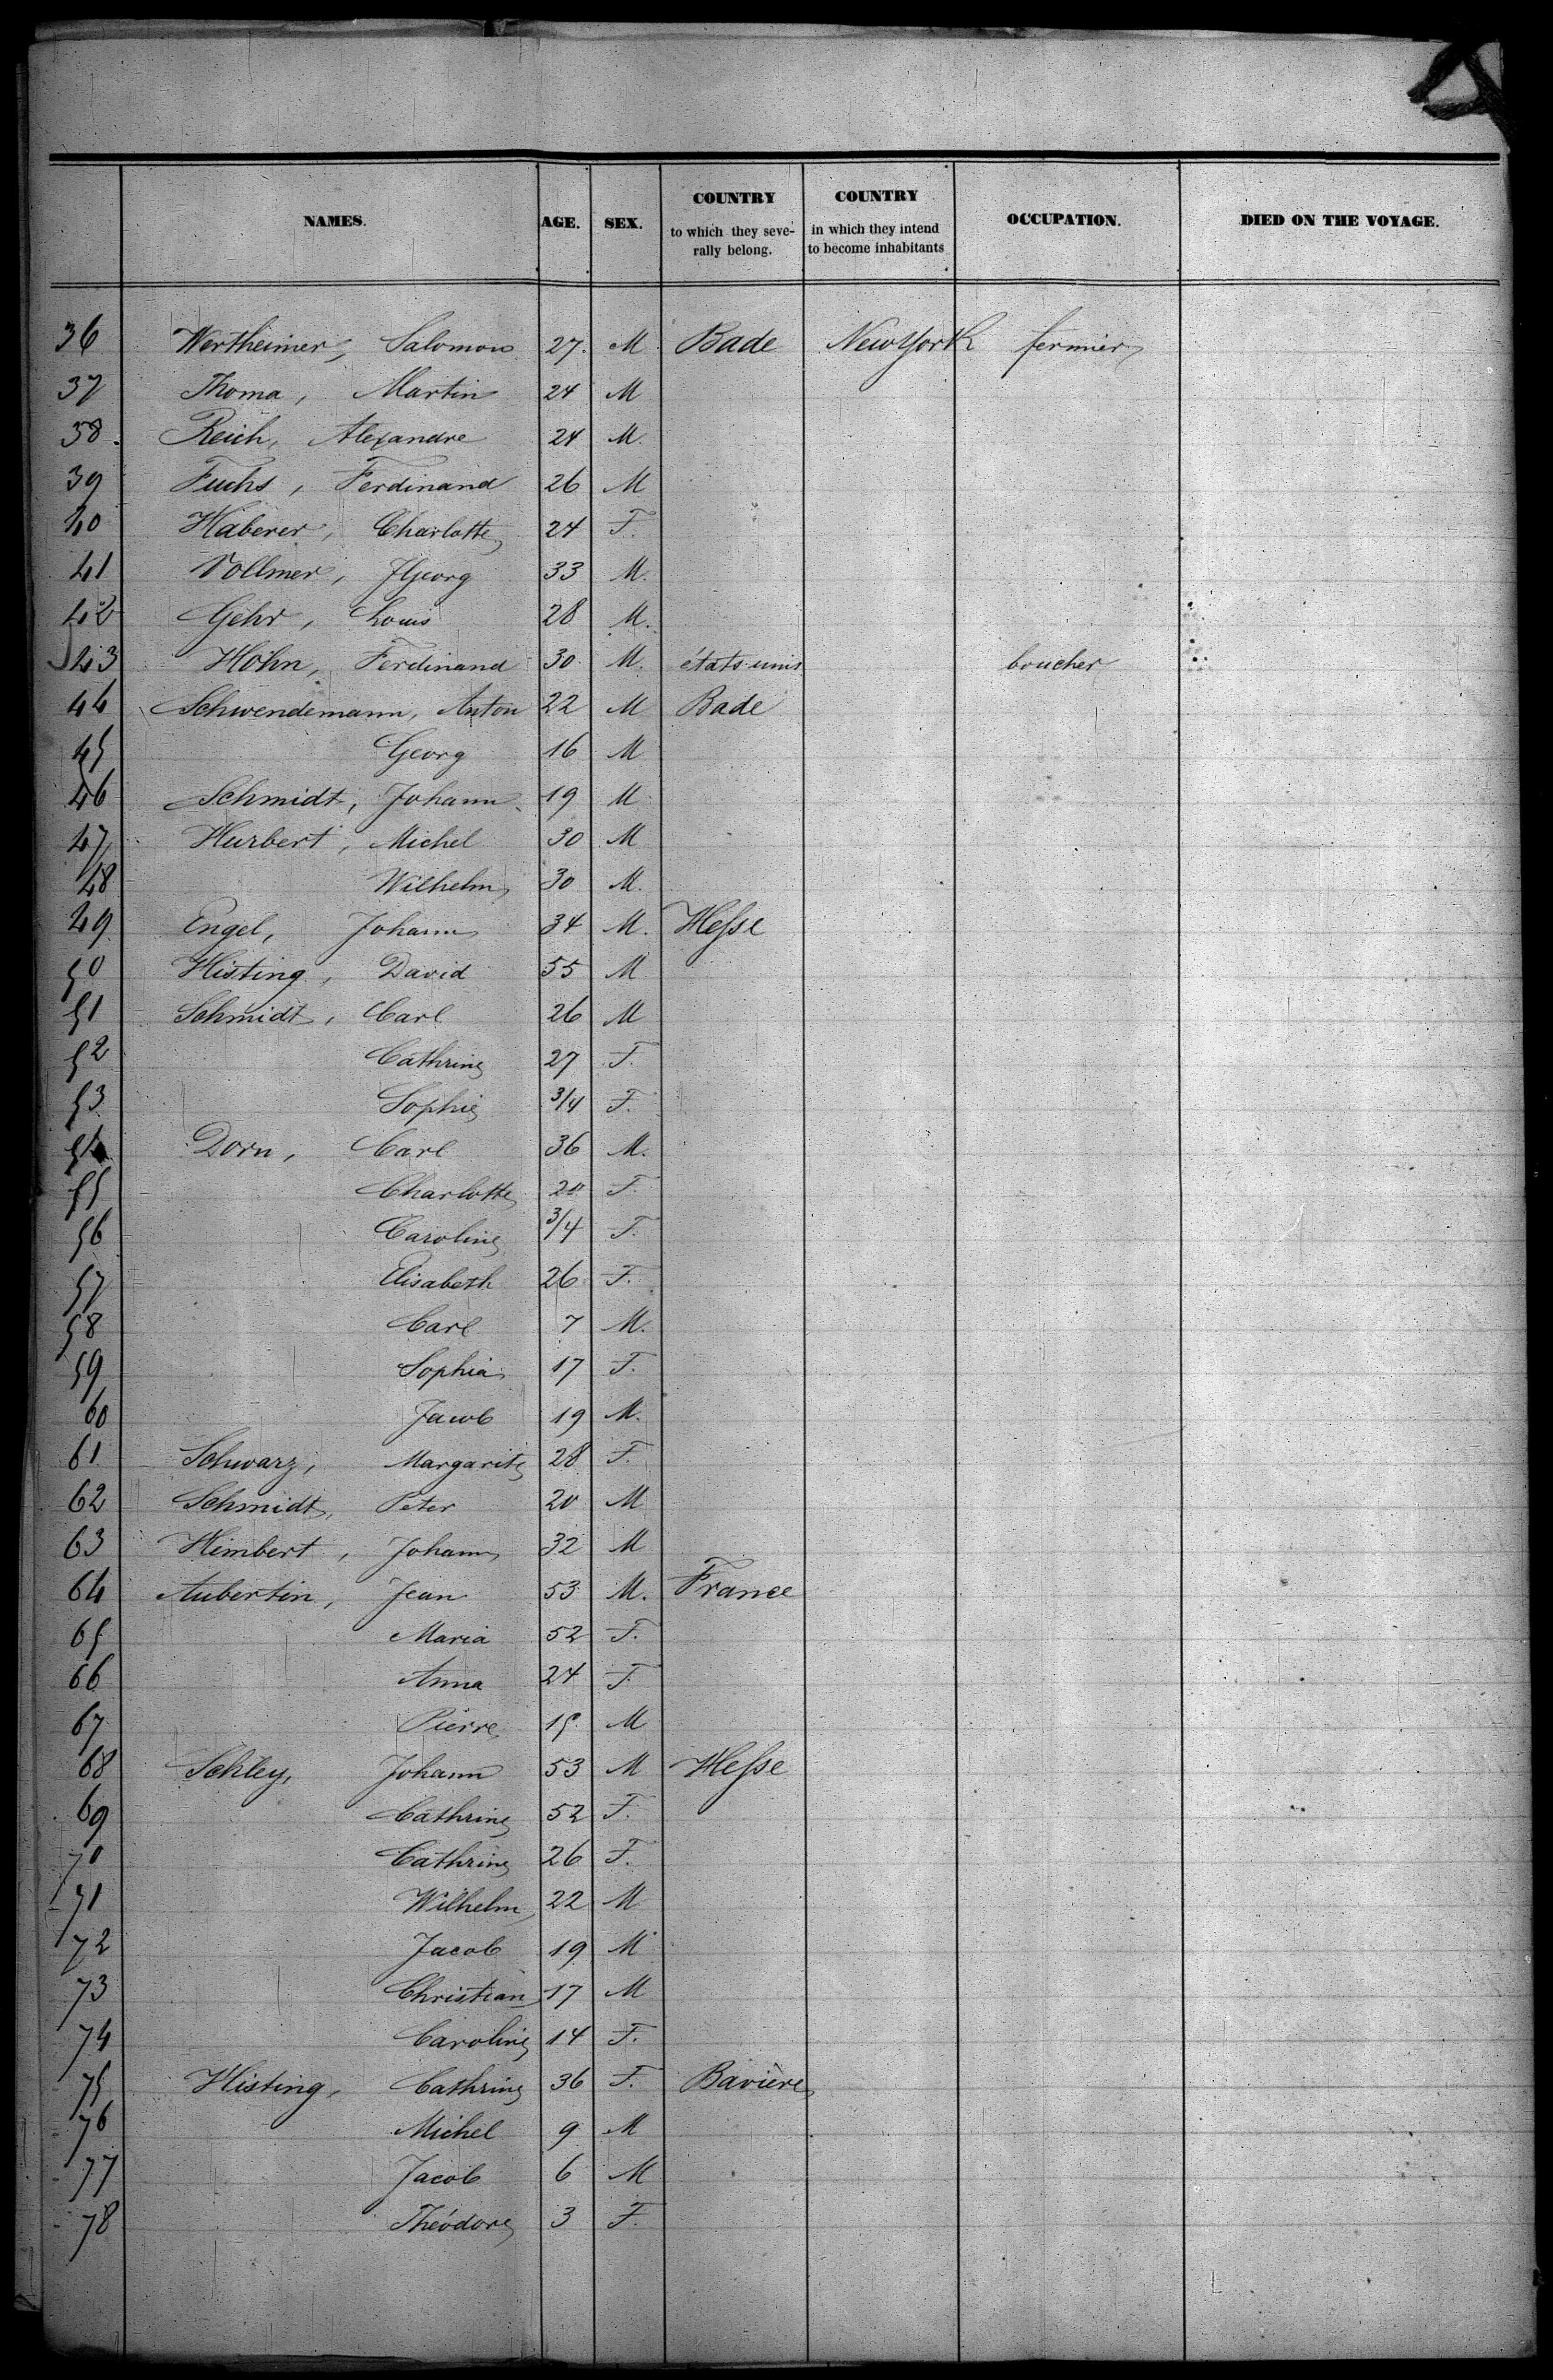 NAMES. AGE. SEX. COUNTRY to which they seve- rally belong. COUNTRY in which they intend to become inhabitants OCCUPATION. DIED ON THE VOYAGE.
36 Wertheimer, Salomon 27. M. Bade New York fermier
37 Thoma, Martin 24 M
38. Reich, Alexandre 24 M.
39 Fuchs, Ferdinand 26 M
40 Häberer, Charlotte 24 F.
41 Vollmer, JGeorg 33 M.
42 Gehr, Louis 28 M.
43 Höhn, Ferdinand 30 M. états-unis boucher
44 Schwendemann, Anton 22 M Bade
45 Georg 16 M
46 Schmidt, Johann 19 M
47 Hurbert, Michel 30 M
48 Wilhelm 30 M.
49 Engel, Johann 34 M. Hesse
50 Histing, David 55 M
51 Schmidt, Carl 26 M
52 Cathrine 27 F.
53 Sophie 3/4 F.
54 Dorn, Carl 36 M.
55 Charlotte 20 F.
56 Caroline 3/4 F.
57 Elisabeth 26 F.
58 Carl 7 M.
59 Sophia 17 F.
60 Jacob 19 M.
61 Schwarz, Margarite 28 F.
62 Schmidt, Peter 20 M
63 Himbert, Johann 32 M
64 Aubertin, Jean 53 M. France
65 Maria 52 F.
66 Anna 24 F
67 Pierre 15 M
68 Schley, Johann 53 M Hesse
69 Cathrine 52 F.
70 Cathrine 26 F.
71 Wilhelm 22 M
72 Jacob 19 M
73 Christian 17 M
74 Caroline 14 F.
75 Histing, Cathrine 36 F. Bavière
76 Michel 9 M
77 Jacob 6 M
78 Théodore 3 F.